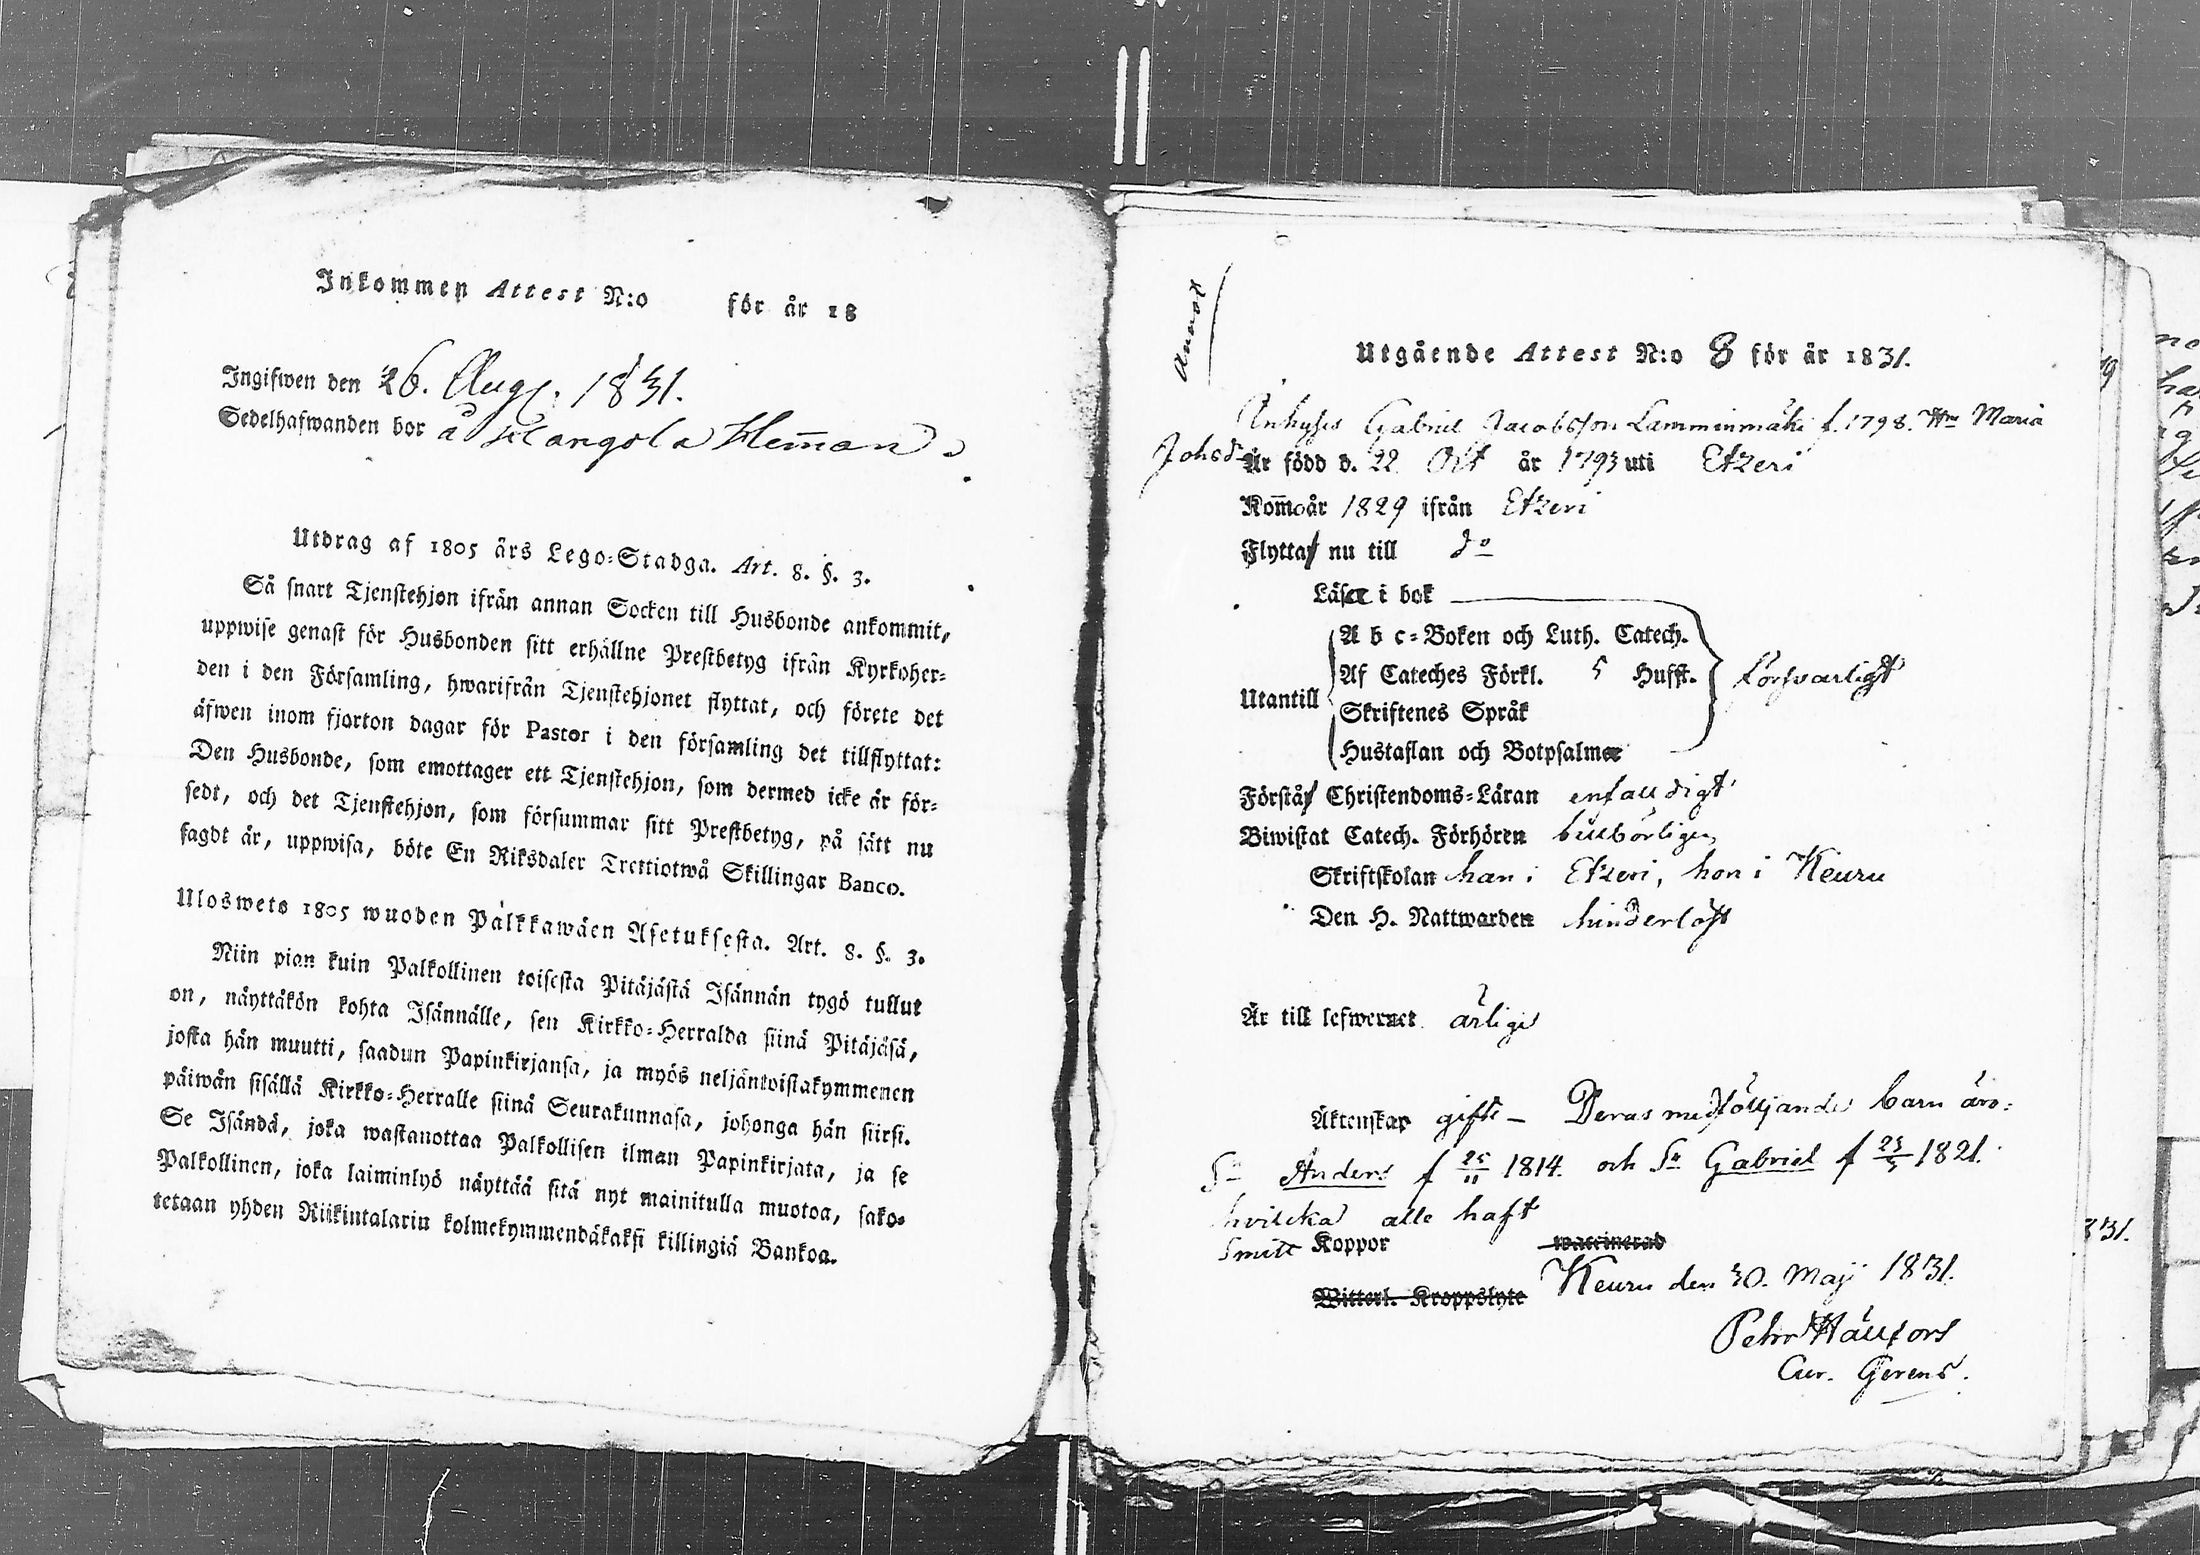 Inkommen Attest N:o för år 18
Ingifwen den 26. Aug. 1831.
Sedelhafwanden bor å Kangola Heman
Utdrag af 1805 års Lego-Stadga. Art. 8. §. 3.
Så snart Tjenstehjon ifrån annan Socken till Husbonde ankommit,
uppwise genast för Husbonden sitt erhållne Prestbetyg ifrån Kyrkoher-
den i den Församling, hwarifrån Tjenstehjonet flyttat, och förete det
äfwen inom fjorton dagar för Pastor i den församling det tillflyttat:
Den Husbonde, som emottager ett Tjenstehjon, som dermed icke är för-
sedt, och det Tjenstehjon, som försummar sitt Prestbetyg, på sätt nu
sagdt är, uppwisa, böte En Riksdaler Trettiotwå Skillingar Banco.
Ulosweto 1805 wuoden Palkkawäen Asetuksesta. Art. 8. §. 3.
Niin pian kuin Palkollinen toisesta Pitäjästä Isännän tygö tullut
on, näyttäkön kohta Isännälle, sen Kirkko-Herralda siinä Pitäjäsä,
josta hän muutti, saadun Papinkirjansa, ja myös neljäntoistakymmenen
päiwän sisällä Kirkko-Herralle siinä Seurakunnasa, johonga hän siirsi.
Se Isändä, joka wastanottaa Palkollisen ilman Papinkirjata, ja se
Palkollinen, joka laiminlyö näyttää sitä nyt mainitulla muotoa, sako-
tetaan yhden Riikintalarin kolmekymmendäkaksi killingiä Bankoa.
Utgående Attest N:o 8 för år 1831.
Inhyses Gabriel Jacobsson Lamminmäki f. 1798. Hu Maria
Johsdr
Är född d. 22 Oct år 1793 uti Etzeri
Kom̄o år 1829 ifrån Etzeri
Flytta nu till do
Läsa i bok
A b c-Boken och Luth. Catech.
Af Cateches Förkl. 5 Hufst. försvarligt
Utantill
Skriftenes Språk
Hustaflan och Botpsalmer
Förstå Christendoms-Läran enfaldigt
Biwistat Catech. Förhören behörligen
Skriftskolan han i Etzeri, hon i Keuru
Den H. Nattwarden hinderlöst
Är till lefwernet ärlige
Äktenskap gifte – Deras medföljande barn äro:
Sn Anders f 25/11 1814. och Sn Gabriel f 23/5 1821.
hvilcka alle haft
Smitt Koppor waccinerad
Witterl. Kroppslyte Keuru den 30. Maji 1831.
Pehr Hällfors
Cur. Gerens.
831.